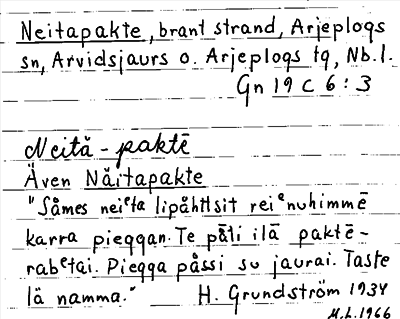 Neitapakte, brant strand, Arjeplogs
sn, Arvidsjaurs o. Arjeplogs tg, Nb. l.
Gn 19 C 6 : 3
Neitǎ - paktē
Även Nåitapakte
"Såmes neiᵉta lipåhtlsit reiᵉnuhimmē
karra pieggan. Te pāti ilā paktē-
rabᵉtai. Piegga påssi su jaurai. Taste
lä namma." H. Grundström 1934
M.L. 1966